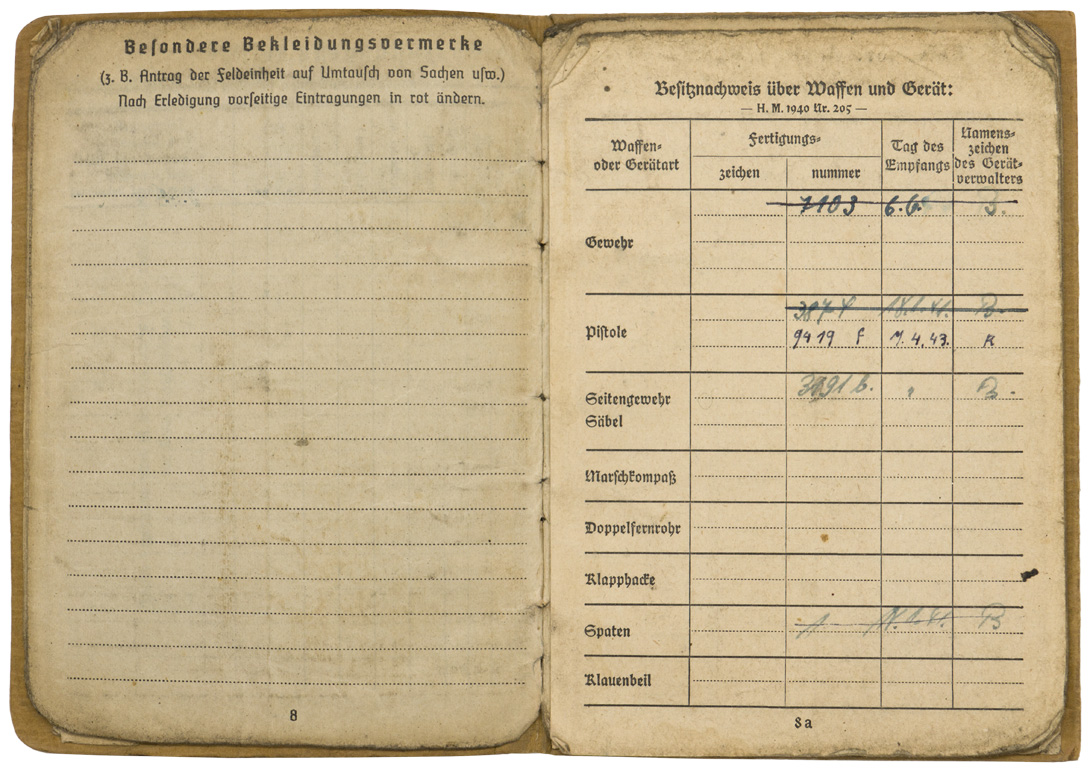 Besondere Bekleidungsvermerke
(z. B. Antrag der Feldeinheit auf Umtausch von Sachen usw.)
Nach Erledigung vorseitige Eintragungen in rot ändern.
8
Besitznachweis über Waffen und Gerät:
— H. M. 1940 Nr. 205 —
Waffen- oder Gerätart
Fertigungs-
zeichen
nummer
Tag des Empfangs
Namens-
zeichen
des Gerät-
verwalters
Gewehr
7103 6.6. B.
Pistole
B.
9419 f 7.4.43. R
Seitengewehr
Säbel
" B.
Marschkompaß
Doppelfernrohr
Klapphacke
Spaten
B
Klauenbeil
8a